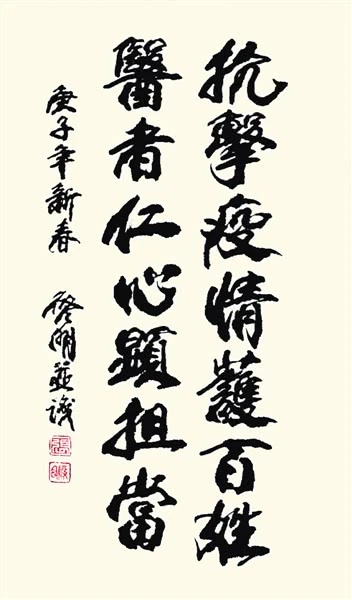 抗擊疫情護百姓
醫者仁心顯担當
庚子年新春 啓明並識